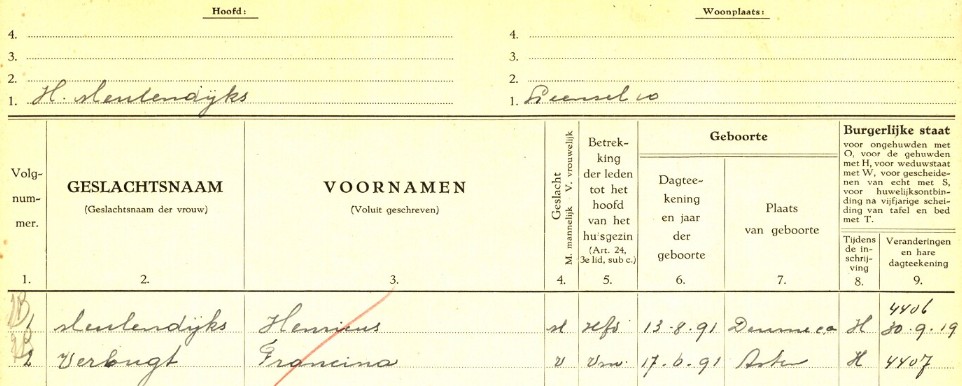 Hoofd:
Woonplaats:
4.
4.
3.
3.
2.
2.
1. H. Meulendijks
1.
Volg-
num-
mer.
GESLACHTSNAAM
(Geslachtsnaam der vrouw)
VOORNAMEN
(Voluit geschreven)
Geslacht
M. mannelijk V. vrouwelijk
Betrek-
king
der leden
tot het
hoofd
van het
huisgezin
(Art. 24,
3e lid, sub c.)
Geboorte
Dagtee-
kening
en jaar
der
geboorte
Plaats
van geboorte
Burgerlijke staat
voor ongehuwden met
O, voor de gehuwden
met H, voor weduwstaat
met W, voor gescheide-
nen van echt met S,
voor huwelijksontbin-
ding na vijfjarige schei-
ding van tafel en bed
met T.
Tijdens
de in-
schrij-
ving
Veranderingen
en hare
dagteekening
1.
2.
3.
4.
5.
6.
7.
8.
9.
4406
1 Meulendijks Henricus M Hfd 13-8-91 H 30-9-19
2 Verbugt Francina V Vrw 17-6-91 Asten H 4407